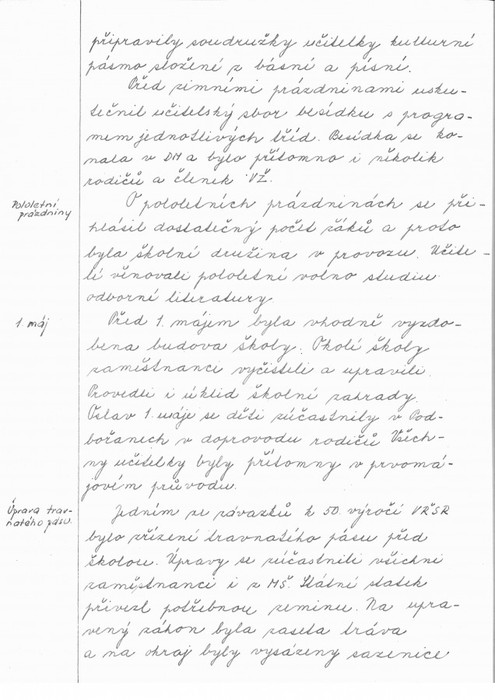 připravily soudružky učitelky kulturní
pásmo složení z básní a písní.
Před zimními prázdninami usku-
tečnil učitelský sbor besídku s progra-
mem jednotlivých tříd. Besídka se ko-
nala v DM a bylo přítomno i několik
rodičů a členek VŽ.
Pololetní
prázdniny
O pololetních prázdninách se při-
hlásil dostatečný počet žáků a proto
byla školní družina v provozu. Učite-
lé věnovali pololetní volno studiu
odborné literatury
1 máj
Před 1. májem byla vhodně vyzdo-
bena budova školy. Okolí školy
zaměstnanci vyčistili a upravili.
Provedli i úklid školní zahrady.
Oslav 1. máje se děti zúčastnily v Pod-
bořanech v doprovodu rodičů Všech-
ny učitelky byly přítomny v prvomá-
jovém průvodu.
Úprava trav-
natého pásu
Jedním ze závazků k 50. výročí VŘSR
bylo zřízení travnatého pásu před
školou. Úpravy se zúčastnili všichni
zaměstnanci i z MŠ. Státní statek
přivezl potřebnou zeminu. Na upra-
vený záhon byla zaseta tráva
a na okraj byly vysázeny sazenice